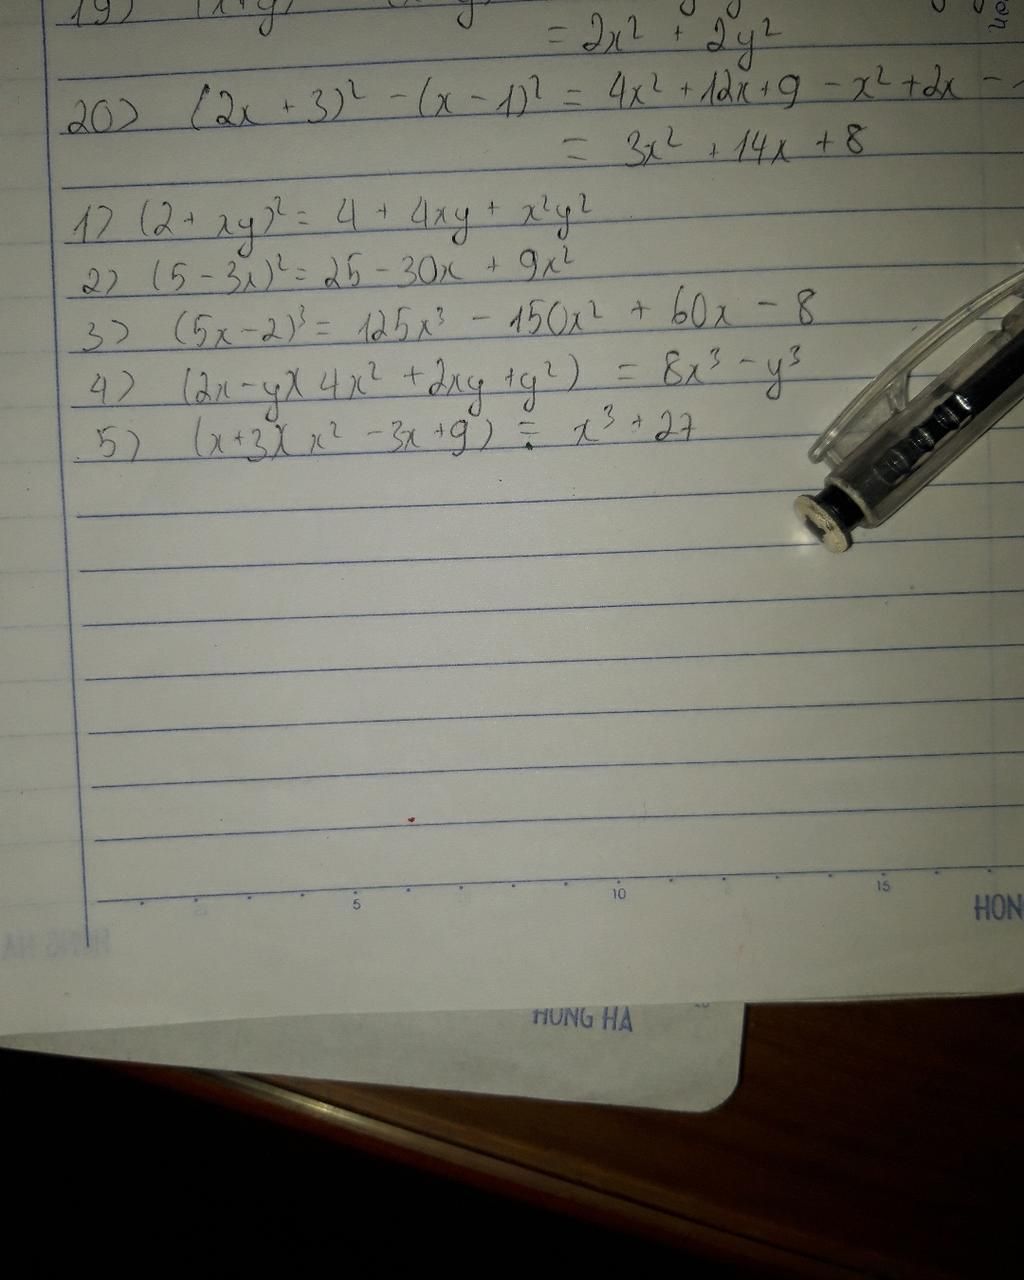 19)
= 2x² + 2y²
20) (2x + 3)² - (x - 1)² = 4x² + 12x + 9 - x² + 2x -
= 3x² + 14x + 8
1) (2 + xy)² = 4 + 4xy + x²y²
2) (5 - 3x)² = 25 - 30x + 9x²
3) (5x - 2)³ = 125x³ - 150x² + 60x - 8
4) (2x - y)(4x² + 2xy + y²) = 8x³ - y³
5) (x + 3)(x² - 3x + 9) = x³ + 27
5 10 15
HON
HONG HA